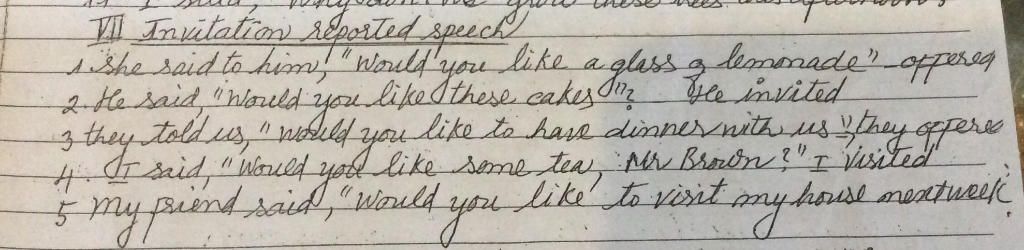 VII Invitation reported speech
1. She said to him, "Would you like a glass of lemonade" offered
2. He said, "Would you like these cakes"? He invited
3 they told us, "would you like to have dinner with us", they offered
4. I said, "Would you like some tea, Mr Brown?" I visited
5 My friend said, "Would you like to visit my house next week.